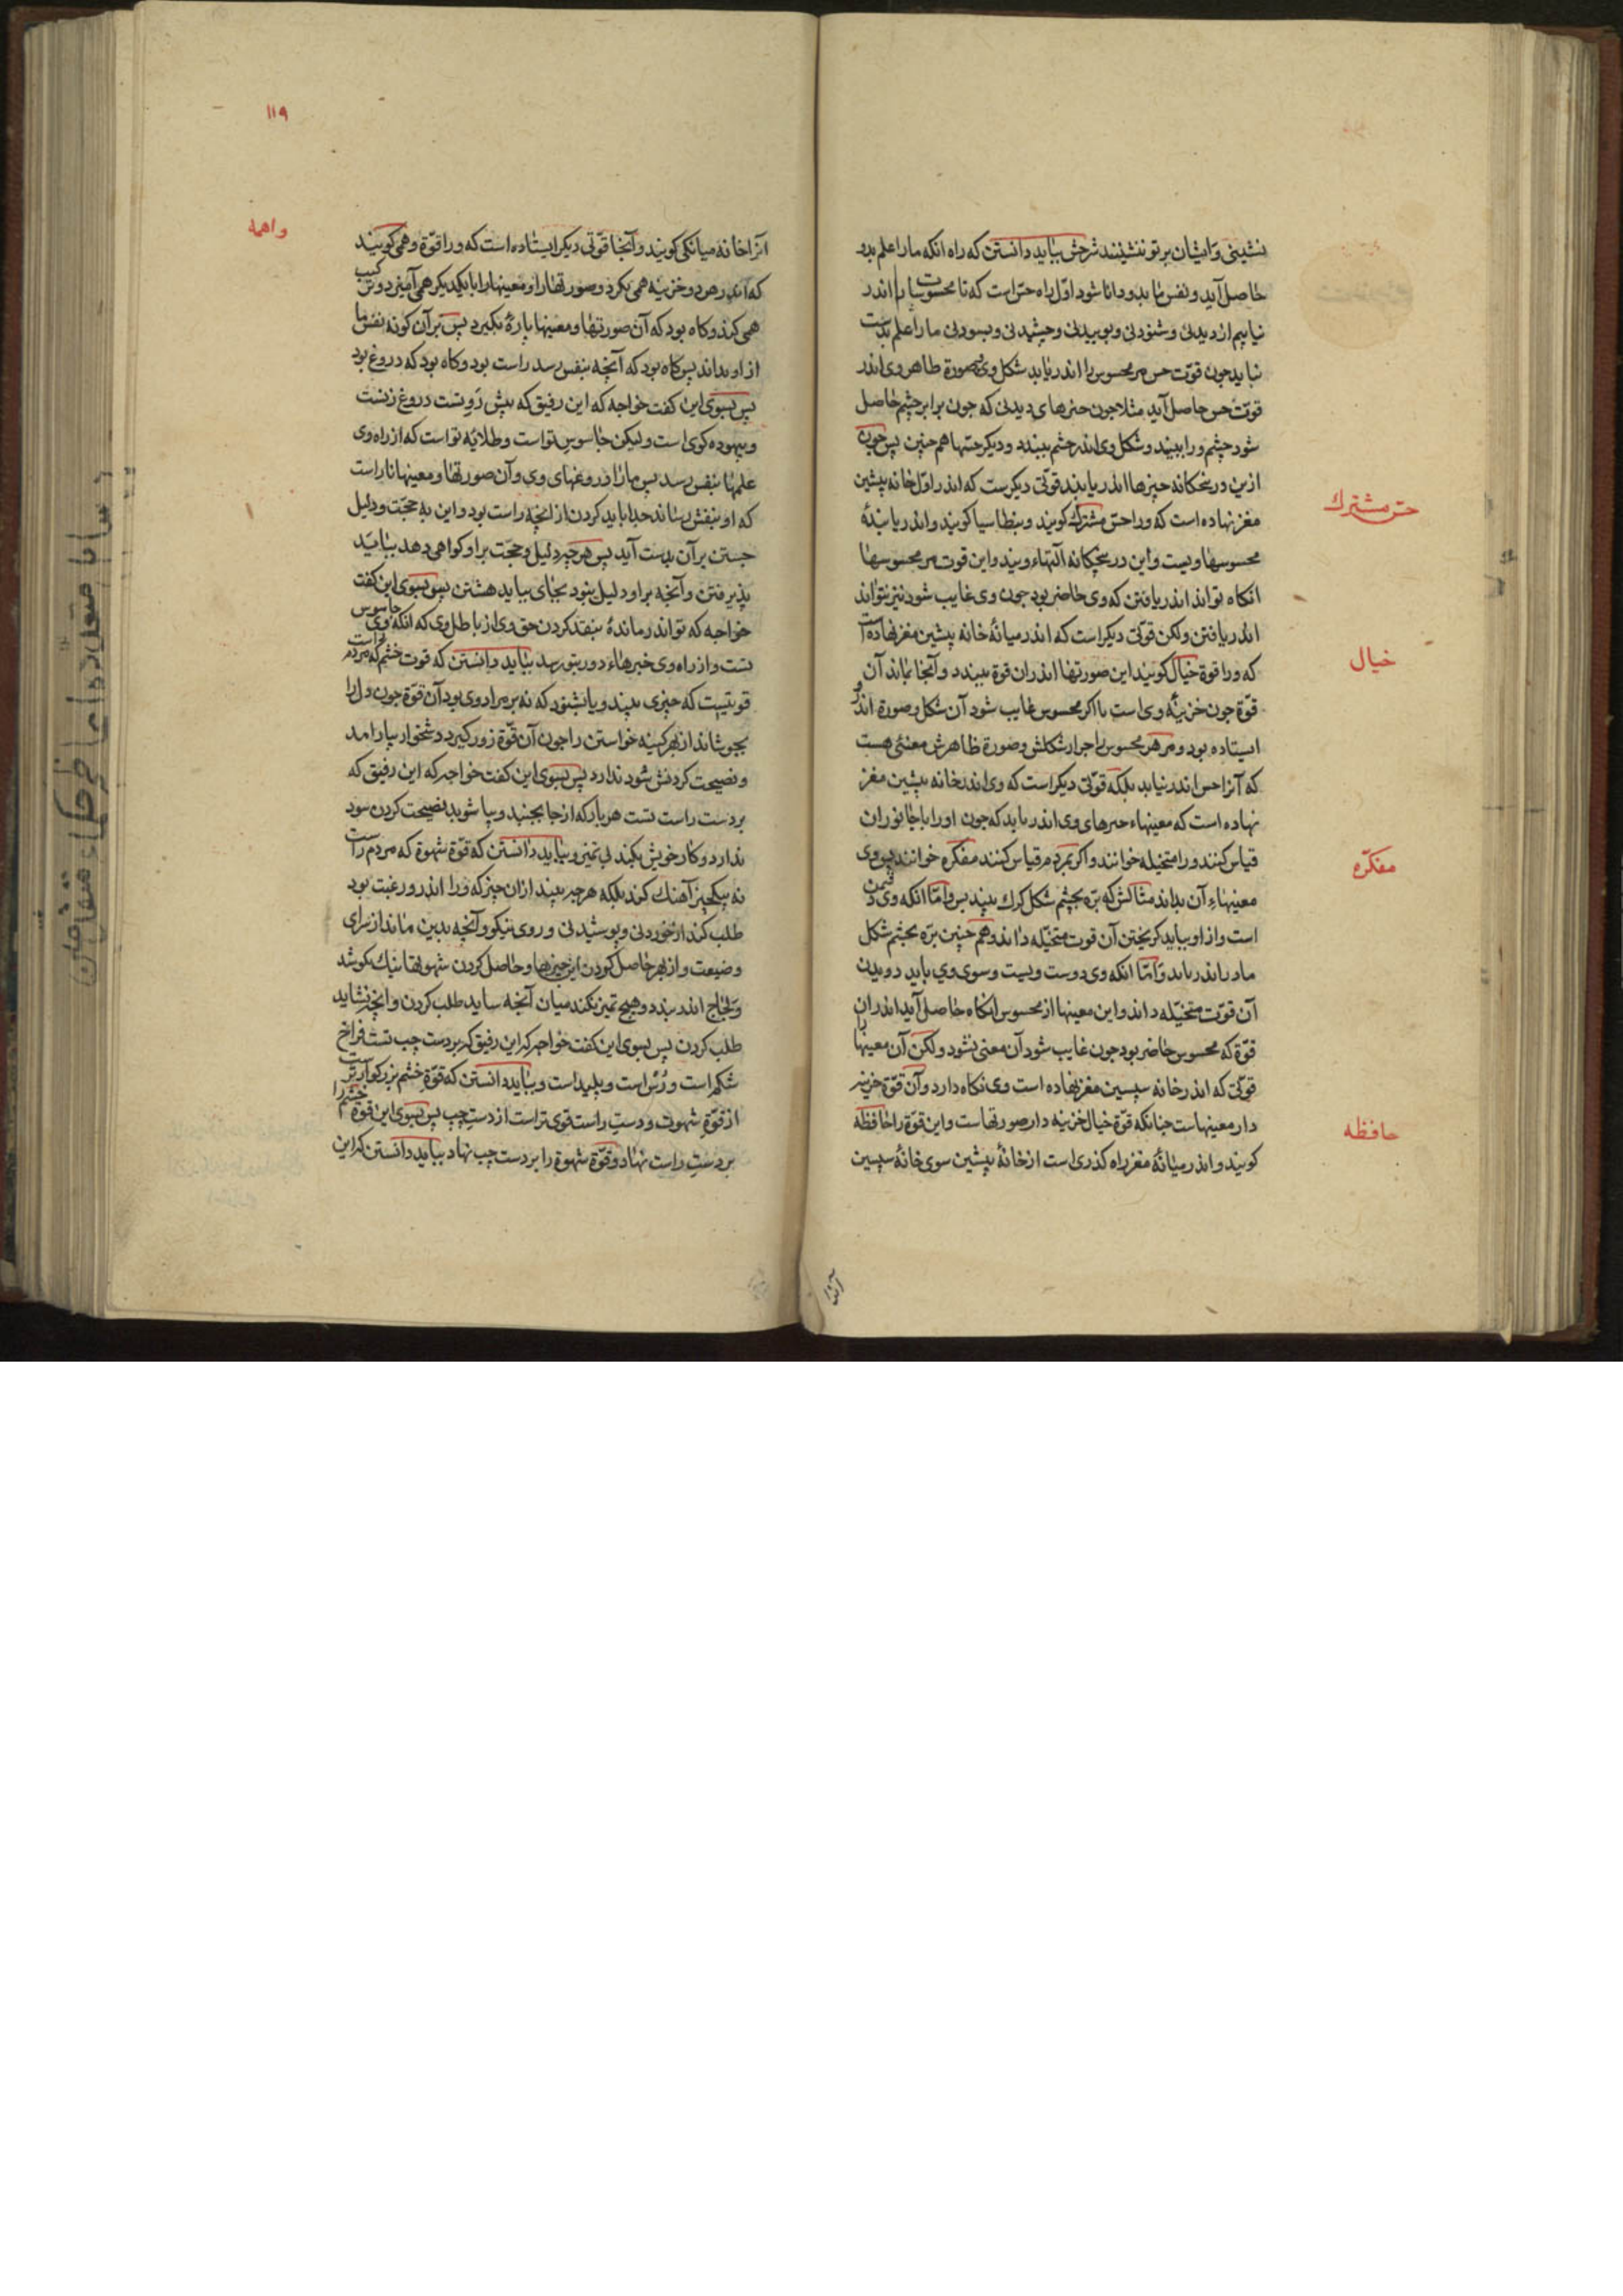 نشینی و ایشان بر تو ننشینند شرحش بباید دانستن که راه انکه ما را علم بدو
حاصل آید و نفس ما بدو دانا شود اوّل راه حس است که تا محسوسات را اندر
نیابیم از دیدنی و شنودنی و بوییدنی و چشیدنی و بسودنی ما را علم بدست
نیاید چون قوّت حس مر محسوس را اندر یابد شکل وی و صورة ظاهر وی اندر
قوّت حس حاصل آید مثلا چون چیزهای دیدنی که چون برابر چشم حاصل
شود چشم ورا ببیند و شکل وی اندر چشم ببندد و دیکر حسّها هم چنین پس چون
ازین در پنجکانه چیزها اندر یابند قوّتی دیکرست که اندر اوّل خانه پیشین
حسّ مشترك
مغز نهاده است که ورا حسّ مشترك کویند و بنطاسیا کویند و اندر یابندهٔ
محسوسها ویست و این در پنجکانه آلتهاء ویند و این قوت مر محسوسها
انکاه تواند اندر یافتن که وی حاضر بود چون وی غایب شود نیز نتواند
اندر یافتن ولکن قوّتی دیکر است که اندر میانهٔ خانه پیشین مغز نهاده است
خیال
که ورا قوة خیال کویند این صورتها اندران قوة ببندد و آنجا بماند آن
قوّة چون خزینهٔ وی است تا اکر محسوس غایب شود آن شکل و صورة اندرو
ایستاده بود و مر هر محسوس را جز از شکلش و صورة ظاهرش معنئی هست
که آنرا حس اندر نیابد بلکه قوّتی دیکر است که وی اندر خانه پیشین مغز
نهاده است که معینهاء چیزهای وی اندر یابد که چون اورا با جانوران
مفکّره
قیاس کنند ورا متخیله خوانند و اکر بمردم قیاس کنند مفکره خوانند پس وی
معینهاء آن بداند مثالش که برّه بچشم شکل کرك ببیند پس و امّا انکه وی دشمن
است و از او بباید کریختن آن قوت متخیّله داند و هم چنین برّه بچشم شکل
مادر اندر یابد و امّا انکه وی دوست ویست و سوی وی باید دویدن
آن قوّت متخیّله داند و این معینها از محسوس انکاه حاصل آید اندران
قوّة که محسوس حاضر بود چون غایب شود آن معنی نشود ولکن آن معینها را
قوّتی که اندر خانه سپسین مغز نهاده است وی نکاه دارد و آن قوّة خزینه
حافظه
دار معینهاست چنانکه قوّة خیال خزینه دار صورتهاست و این قوّة را حافظه
کویند و اندر میانهٔ مغز راه کذری است از خانهٔ پیشین سوی خانهٔ سپسین
آنرا
۱۱۹
واهمه
آنرا خانه میانکی کویند و آنجا قوّتی دیکر ایستاده است که ورا قوّة وهمی کویند
که اندر هر دو خزینه همی نکرد و صورتها را و معینها را با یکدیکر همی آمیزد و ترکیب
همی کند و کاه بود که آن صورتها و معینها پارهٔ بکیرد پس بر آن کونه نفس ما
از او بداند پس کاه بود که آنچه بنفس رسد راست بود و کاه بود که دروغ بود
پس بسوی این کفت خواجه که این رفیق که پیش رو تست دروغ زنست
و بیهوده کوی است ولیکن جاسوس تو است و طلایهٔ تو است که از راه وی
علمها بنفس رسد پس ما را دروغهای وی و آن صورتها و معینها نا راست
که او بنفس رساند جدا باید کردن از انچه راست بود و این به حجّت و دلیل
جستن بر آن بدست آید پس هر چه دلیل و حجّت بر او کواهی دهد بباید
پذیرفتن و آنچه بر او دلیل نبود بجای بباید هشتن پس بسوی این کفت
خواجه که تو اندر ماندهٔ بنقد کردن حق وی از باطل وی که انکه وی جاسوس
تست و از راه وی خبرهاء دور بتو رسد بباید دانستن که قوت خشم که مردم راست
قوتیست که چیزی ببیند و یا بشنود که نه بر مراد وی بود آن قوّة چون دل را
بجوشاند از بهر کینه خواستن را چون آن قوّة زور کیرد دشخوار بیارامد
و نصیحت کردنش سود ندارد پس بسوی این کفت خواجه که این رفیق که
بر دست راست تست هر بار که از جا بجنبد و بیاشوبد نصیحت کردن سود
ندارد و کار خویش بکند بی تمیز و بباید دانستن که قوّة شهوة که مردم راست
نه بیکچیز آهنك کند بلکه هر چه ببیند از ان چیز که ورا اندرو رغبت بود
طلب کند از خوردنی و پوشیدنی و روی نیکو و آنچه بدین ماند از سرای
و ضیعت و از بهر حاصل کردن این چیزها و حاصل کردن شهوتها نیك بکوشد
و بلجاج اندر بندد و هیچ تمیز نکند میان آنچه شاید طلب کردن و انچه نشاید
طلب کردن پس بسوی این کفت خواجه که این رفیق که بر دست چپ تست فراخ
شکم است و دزس است و پلید است و بباید دانستن که قوّة خشم بزرکوارترست
از قوّة شهوت و دست راست قوی تر است از دست چپ پس بسوی این قوة خشم را
بر دست راست نهاد و قوّة شهوة را بر دست چپ نهاد بباید دانستن که این